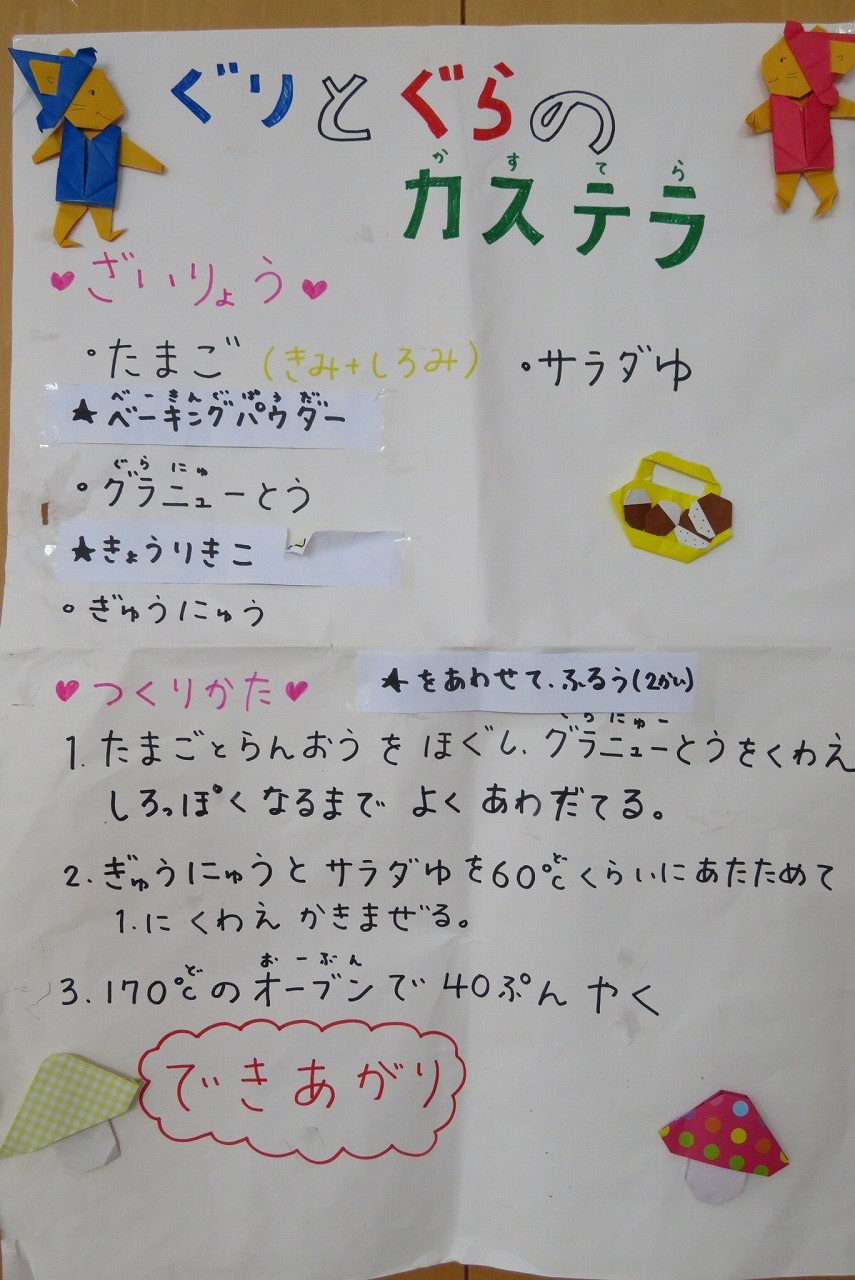 ぐりとぐらの
カステラ
かすてら
♥ざいりょう♥
・たまご(きみ+しろみ) ・サラダゆ
べーきんぐぱうだー
★ベーキングパウダー
ぐらにゅ
・グラニューとう
★きょうりきこ
・ぎゅうにゅう
♥つくりかた♥ ★をあわせて、ふるう(2かい)
ぐらにゅー
1. たまごとらんおうをほぐし、グラニューとうをくわえ
しろっぽくなるまで よくあわだてる。
ど
2. ぎゅうにゅうとサラダゆを60℃くらいにあたためて
1.にくわえかきまぜる。
ど おーぶん
3. 170℃のオーブンで40ぷんやく
できあがり